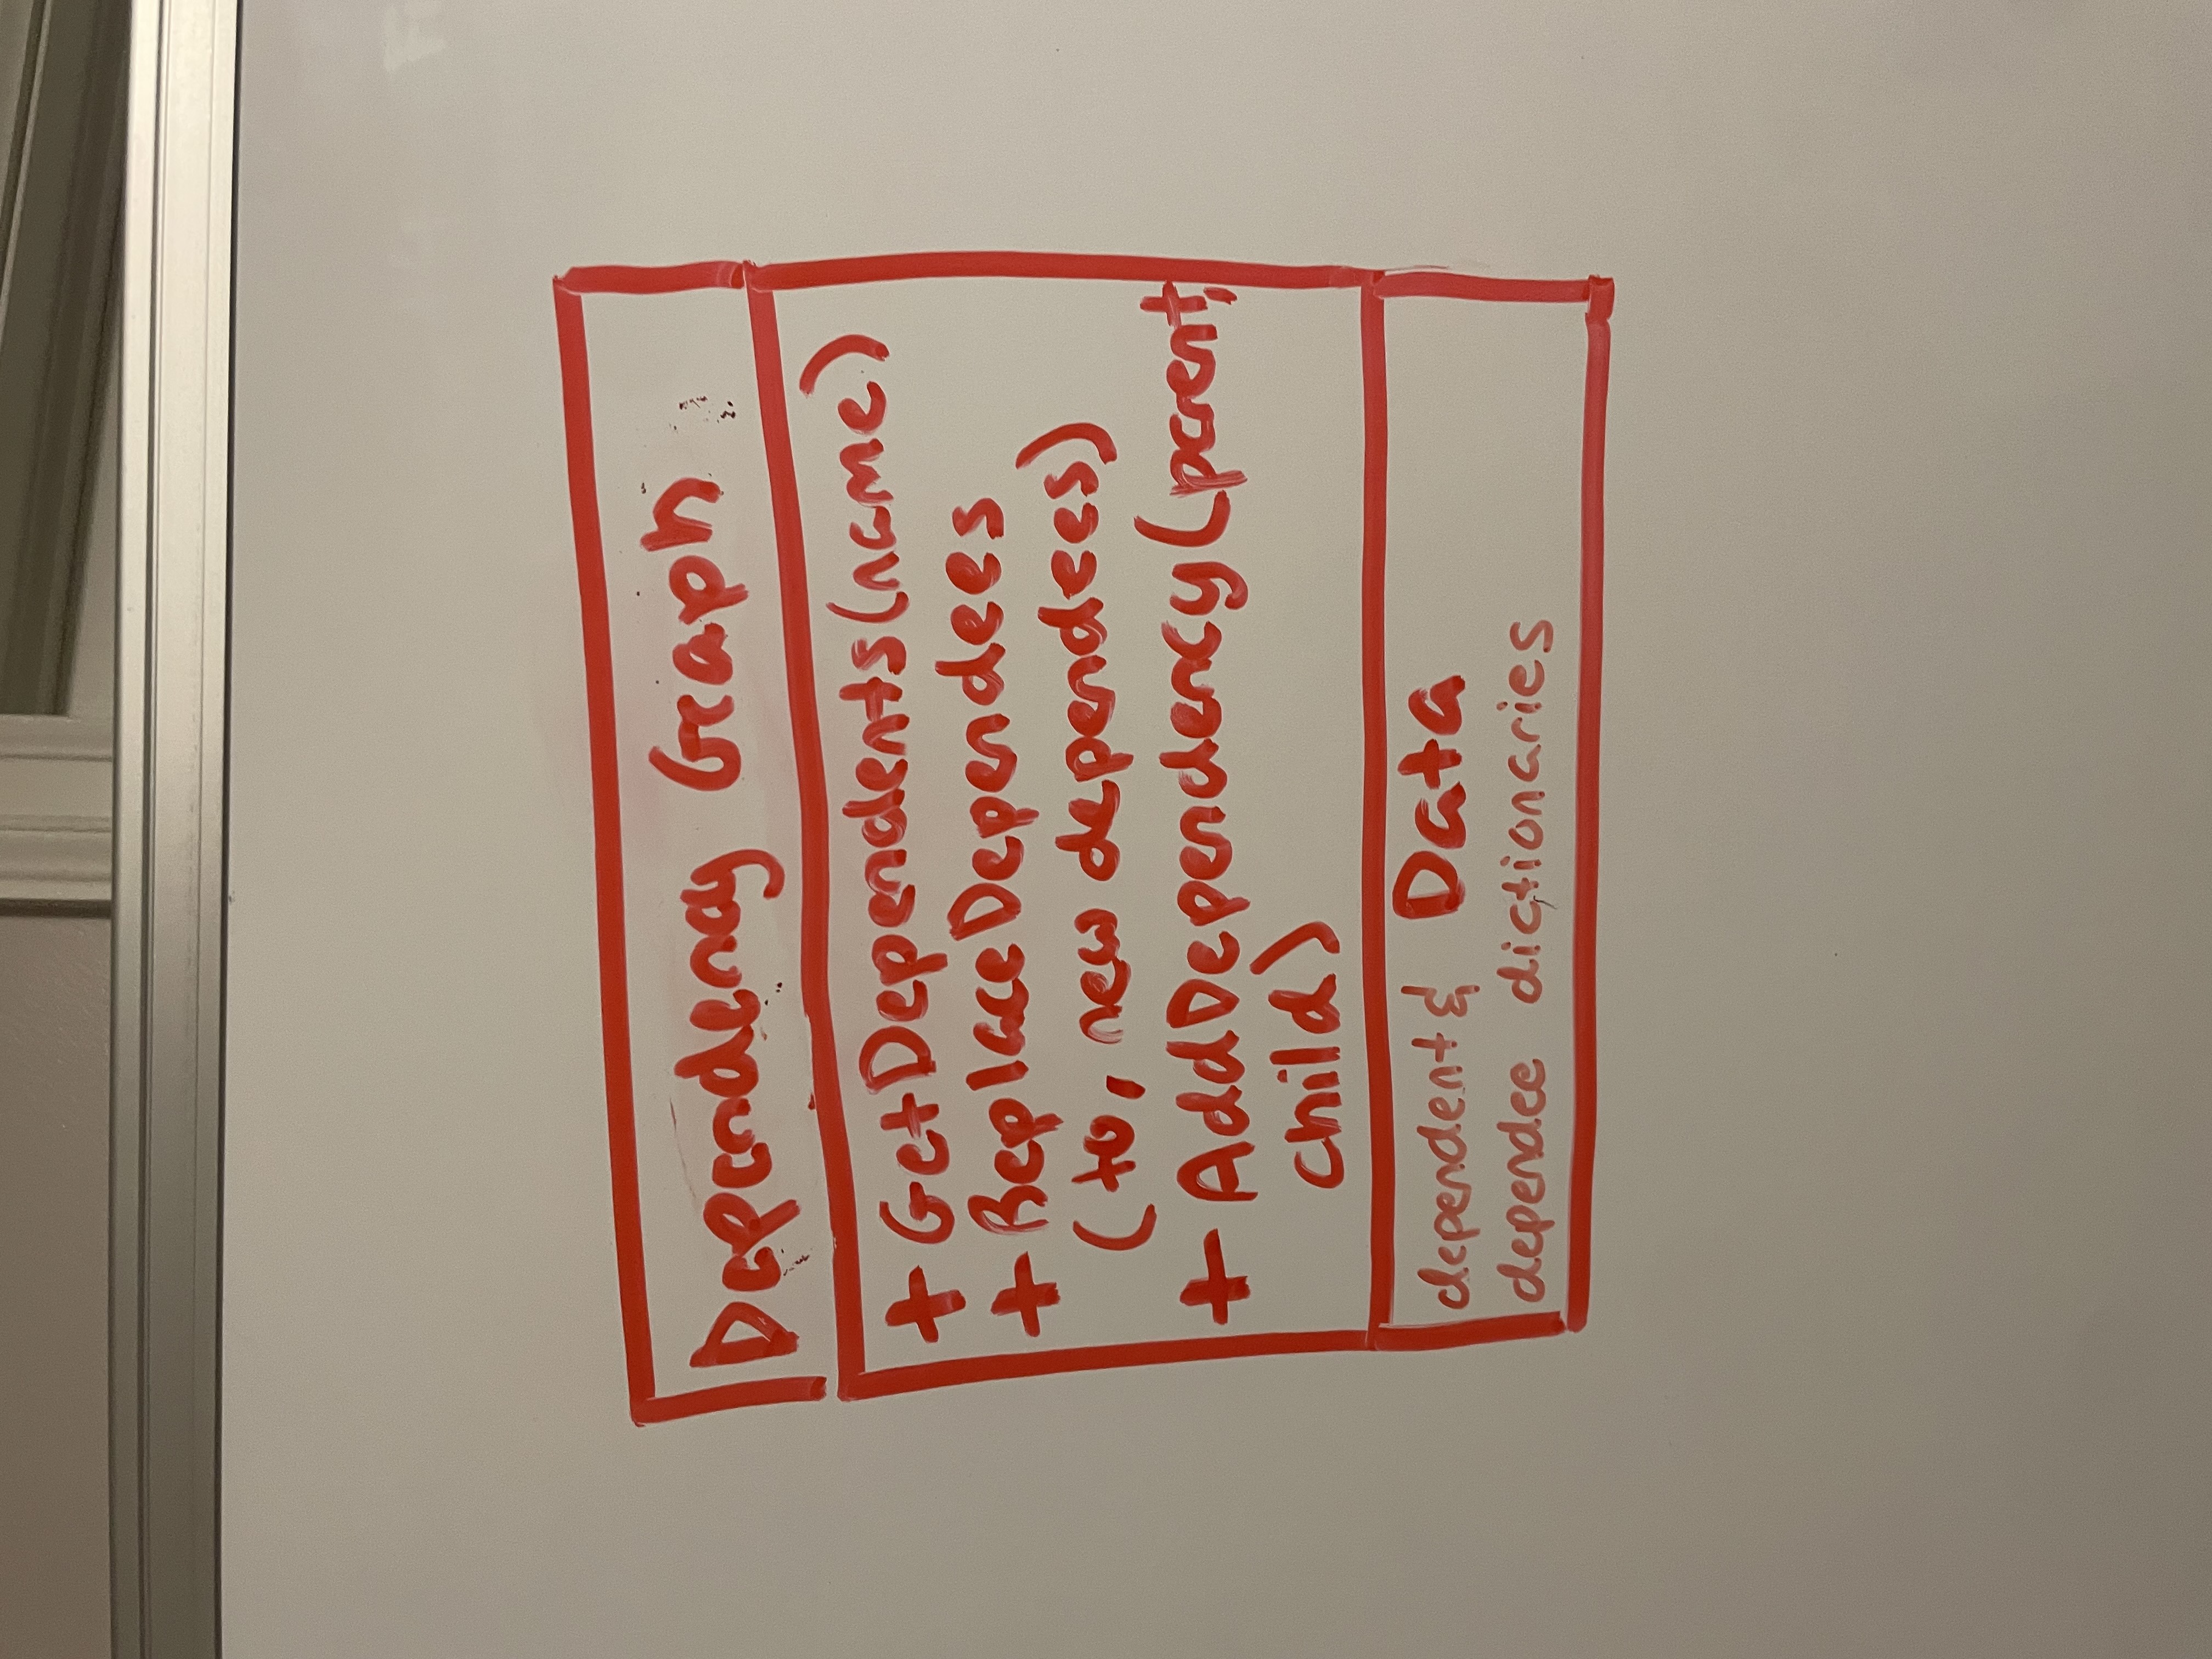 Dependency Graph
+ GetDependents(name)
+ ReplaceDependees
(to, new dependees)
+ AddDependency(parent,
child)
Data
dependent &
dependee dictionaries